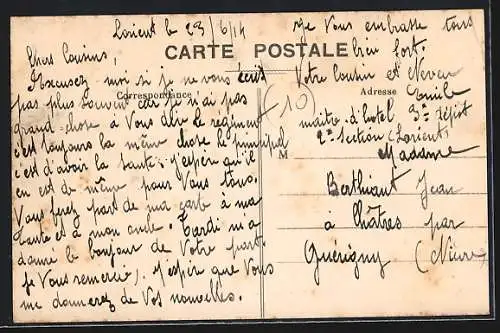 Lorient le 23/6/14
Chers Cousins,
CARTE POSTALE
Correspondance
Adresse
Excusez moi si je ne vous écrit
pas plus souvent car je n'ai pas
grand chose à Vous dire le régiment
c'est toujours la même chose le principal
c'est d'avoir la santé; j'espère qu'il
en est de même pour Vous tous.
Vous ferez part de ma carte à ma
tante et à mon oncle. Tardi m'a
donné le bonjour de Votre part.
je Vous remercie, j'espère que Vous
me donnerez de Vos nouvelles.
Je Vous embrasse tous
bien fort.
Votre Cousin et Neveu
Emile
(10)
maitre d'hotel 3e dépôt
2e section (Lorient)
M
Madame
Berthiant Jean
à Châtres par
Guérigny (Nièvre)